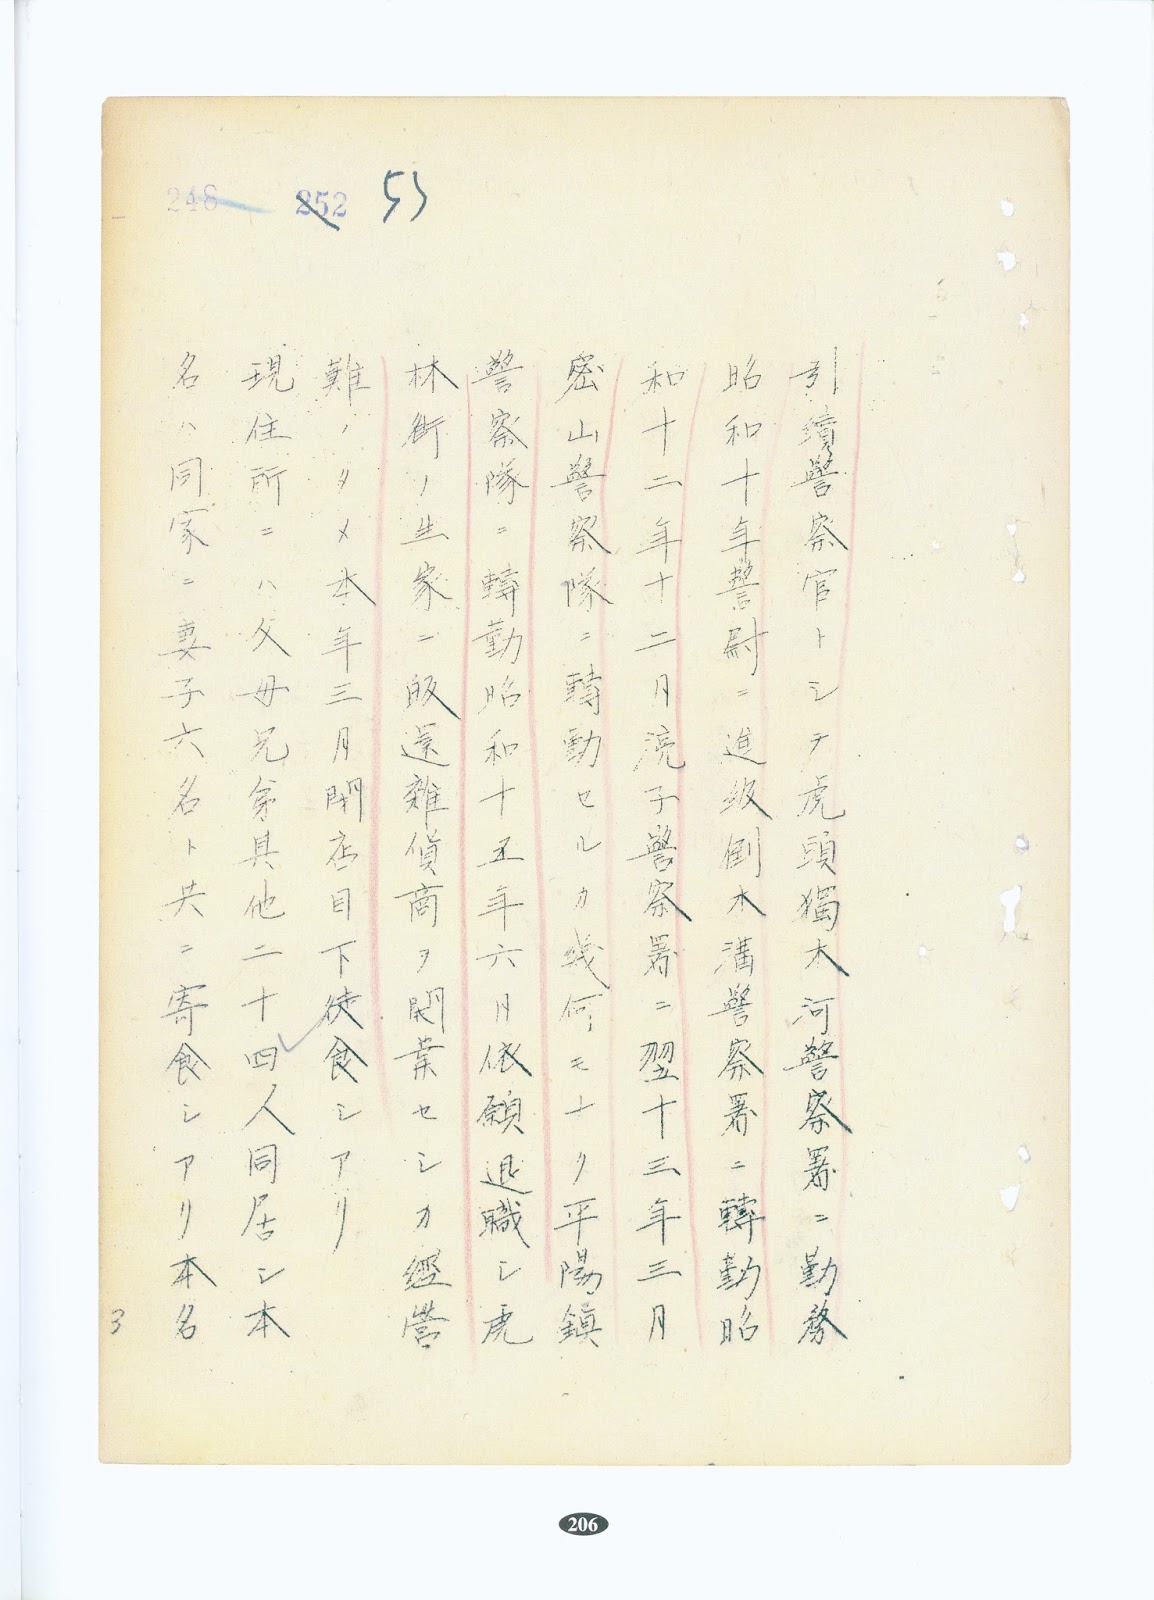 248 252 53
引續警察官トシテ虎頭獨木河警察署ニ勤務
昭和十年警尉ニ進級倒木溝警察署ニ轉勤昭
和十二年十二月滝子警察署ニ翌十三年三月
密山警察隊ニ轉勤セルカ幾何モナク平陽鎮
警察隊ニ轉勤昭和十五年六月依願退職シ虎
林街ノ生家ニ皈還雜貨商ヲ開業セシカ經營
難ノタメ本年三月閉店目下徒食シアリ
現住所ニハ父母兄弟其他二十四人同居シ本
名ハ同家ニ妻子六名ト共ニ寄食シアリ本名
3
206